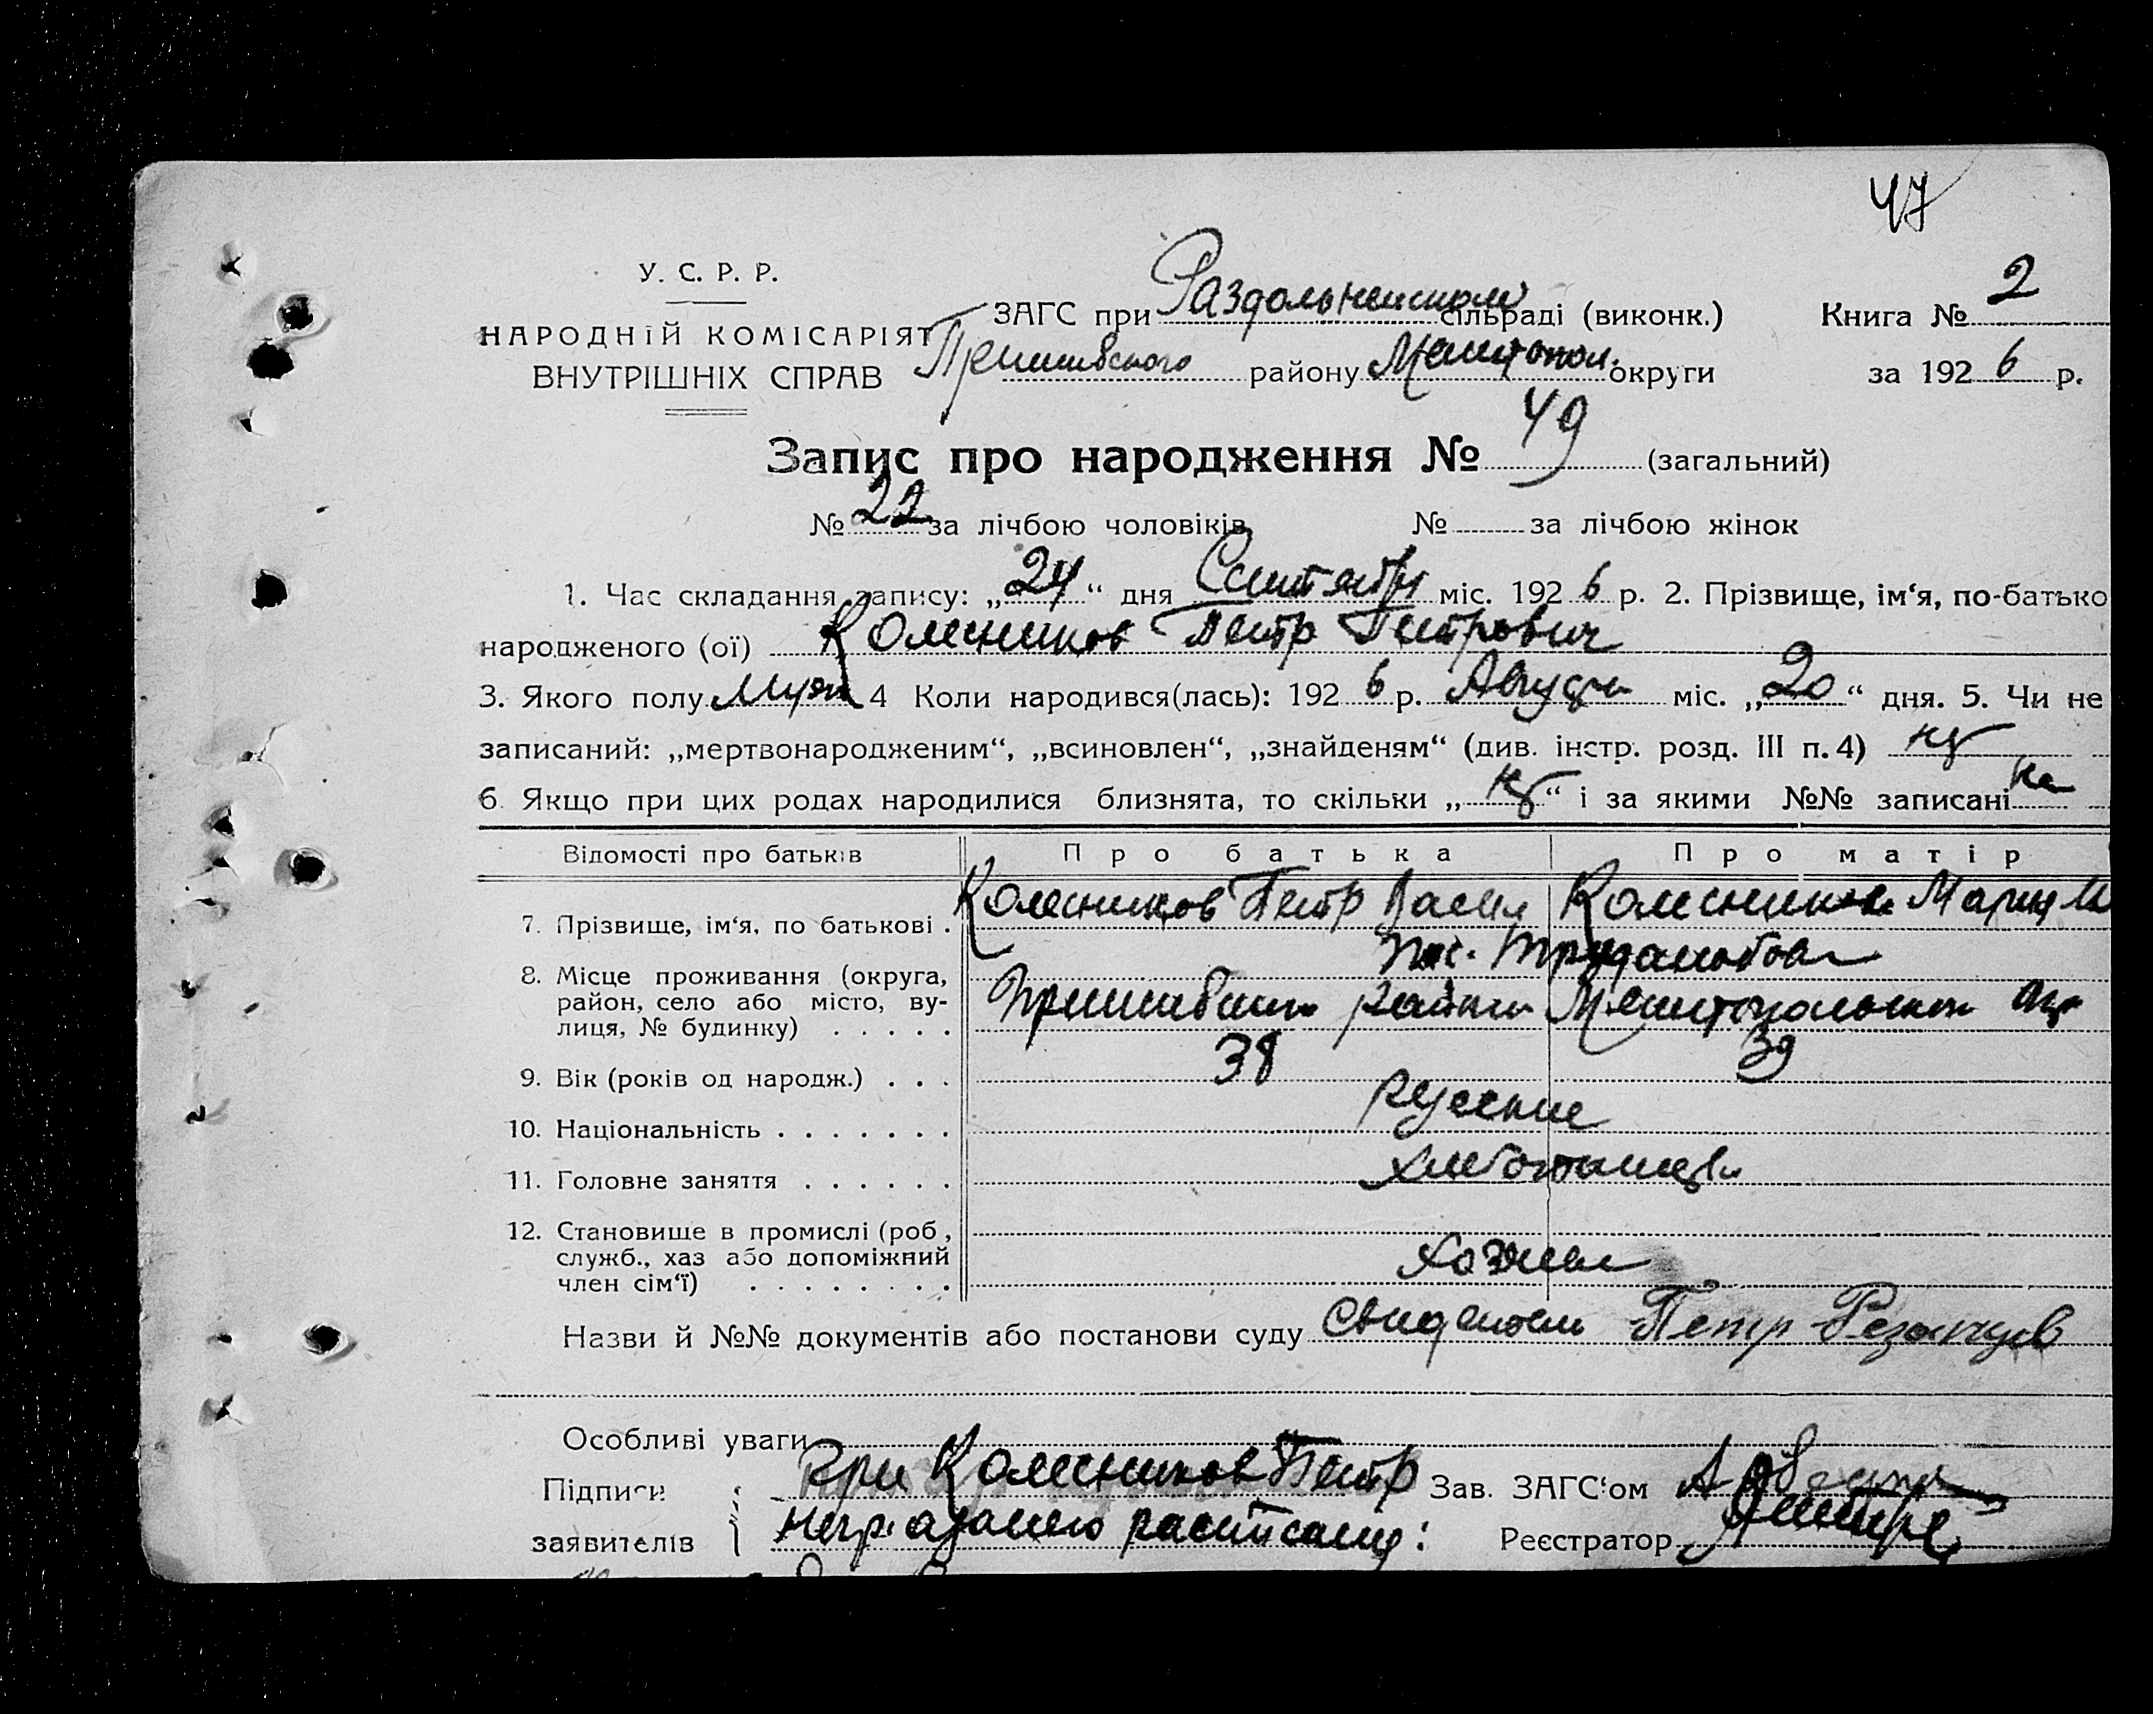 47
У. С. Р. Р.
НАРОДНІЙ КОМІСАРІЯТ
ВНУТРІШНІХ СПРАВ
ЗАГС при Раздольненском сільраді (виконк.)
Пришибского району Мелитопол. округи
Книга № 2
за 1926 р.
Запис про народження № 49 (загальний)
№ 22 за лічбою чоловіків № за лічбою жінок
1. Час складання запису: „24“ дня Сентября міс. 1926 р. 2. Прізвище, ім‘я, по-батько
народженого (ої) Колесников Петр Петрович
3. Якого полу Муж 4 Коли народився(лась): 1926 р. Августа міс. „20“ дня. 5. Чи не
записаний: „мертвонародженим“, „всиновлен“, „знайденям“ (див. інстр. розд. III п. 4)
6. Якщо при цих родах народилися близнята, то скільки „ “ і за якими №№ записані
Відомості про батьків Про батька Про матір
7. Прізвище, ім‘я, по батькові . Колесников Петр Васил Колесникова Мария
8. Місце проживання (округа, район, село або місто, вулиця, № будинку) . . . . . пос.
Пришибского района Мелитопольского Окр
9. Вік (років од народж.) . . . 38 39
10. Національність . . . . . . . Русские
11. Головне заняття . . . . . . хлебопашцы
12. Становище в промислі (роб, служб., хаз або допоміжний член сім‘ї) . . . . . . . . хозяева
Назви й №№ документів або постанови суду свидетели Петр
Особливі уваги
Підписи При Колесников Петр Зав. ЗАГС‘ом
заявителів расписался: Реєстратор